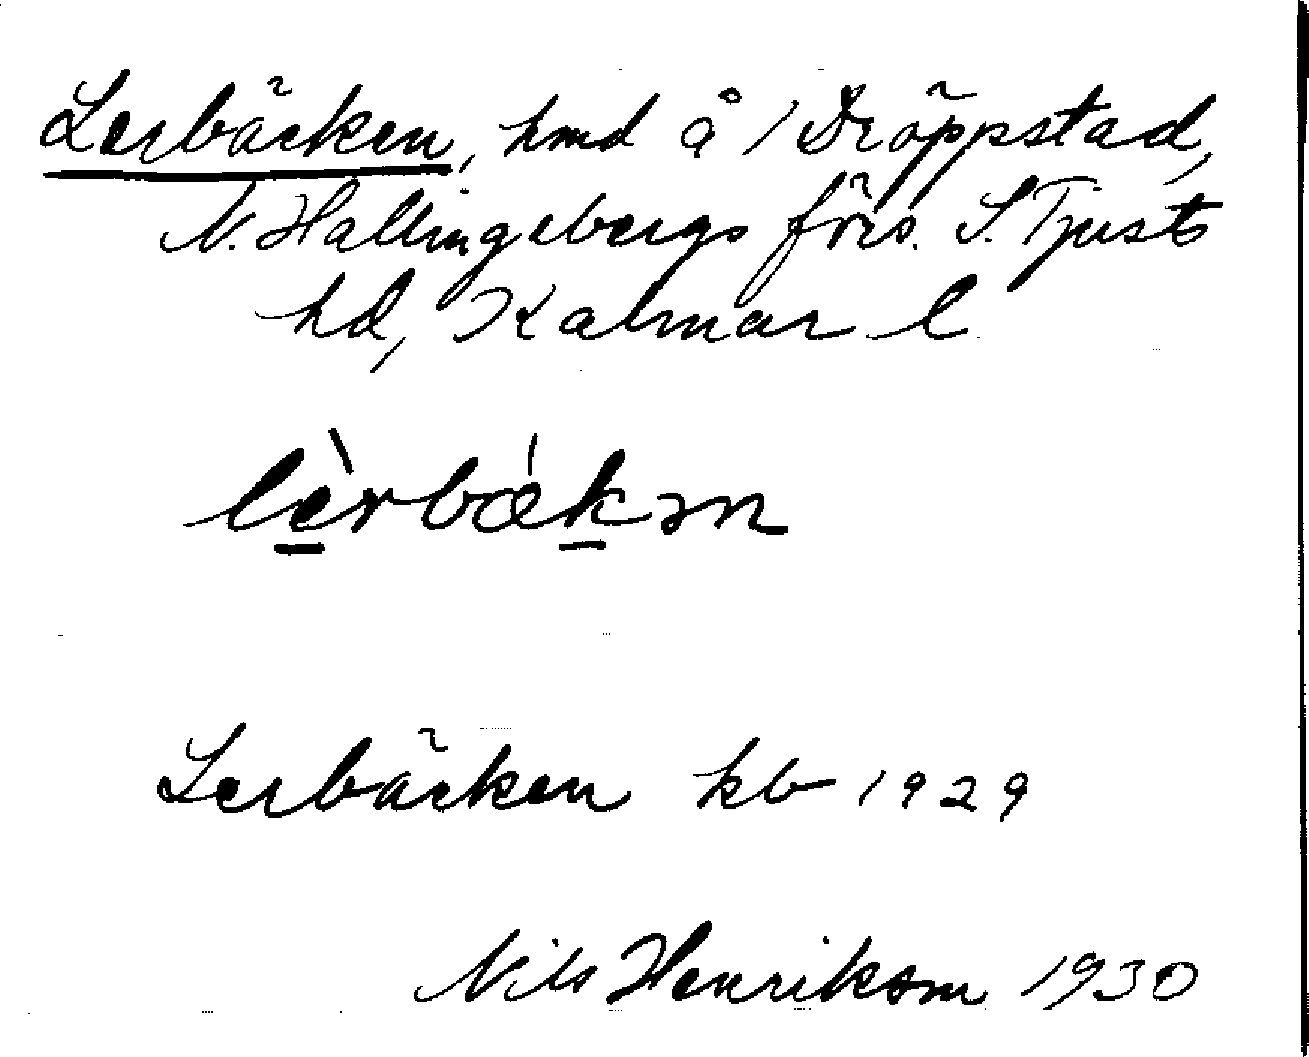 Lerbäcken, hmd å / Dröppstad,
N. Hallingebergs förs. S. Tjusts
hd, Kalmar l
lèrbǽkən
Lerbäcken kb 1929
Nils Henrikson 1930